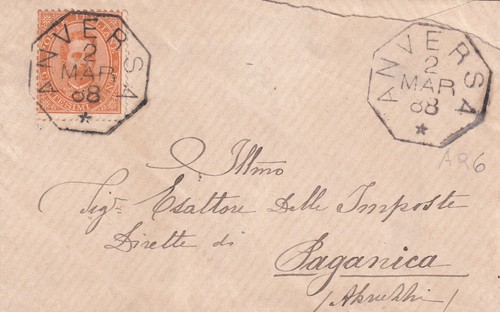 ANVERSA
2
MAR
88
*
ANVERSA
2
MAR
88
*
AQ6
Illmo
Sigr Esattore Delle Imposte
Dirette di
Paganica
(Abruzzi)